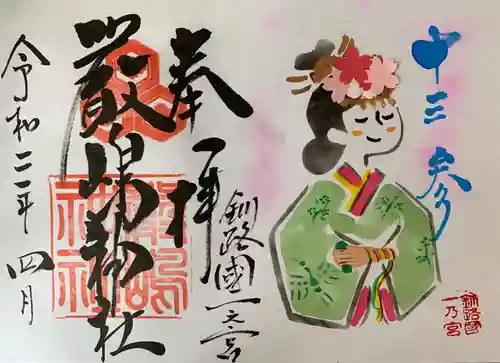 十三参り
奉拝
釧路國一之宮
厳嶋神社
令和二年四月
厳嶋神社
釧路國
一乃宮